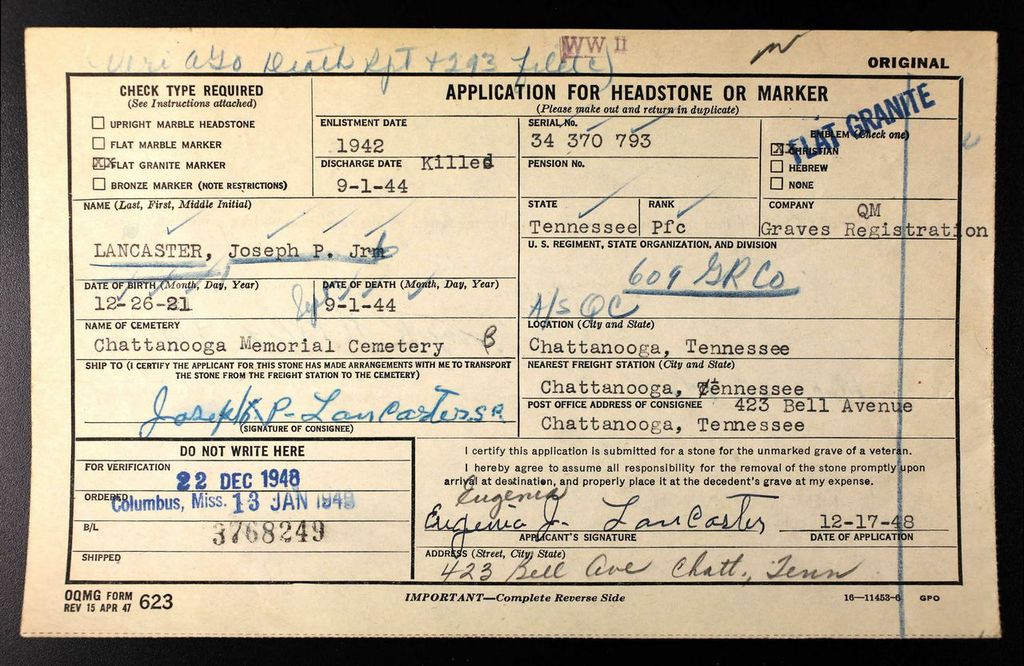 WW II
Death Rpt + 293 filed
ORIGINAL
CHECK TYPE REQUIRED
(See Instructions attached)
UPRIGHT MARBLE HEADSTONE
FLAT MARBLE MARKER
XX FLAT GRANITE MARKER
BRONZE MARKER (NOTE RESTRICTIONS)
APPLICATION FOR HEADSTONE OR MARKER
(Please make out and return in duplicate)
ENLISTMENT DATE
1942
DISCHARGE DATE Killed
9-1-44
SERIAL No.
34 370 793
PENSION No.
EMBLEM (Check one)
X CHRISTIAN
HEBREW
NONE
FLAT GRANITE
NAME (Last, First, Middle Initial)
LANCASTER, Joseph P. Jr
STATE
Tennessee
RANK
Pfc
COMPANY
QM
Graves Registration
U. S. REGIMENT, STATE ORGANIZATION, AND DIVISION
609 GR Co
A/S QC
DATE OF BIRTH (Month, Day, Year)
12-26-21
DATE OF DEATH (Month, Day, Year)
Sept 9-1-44
NAME OF CEMETERY
Chattanooga Memorial Cemetery
LOCATION (City and State)
Chattanooga, Tennessee
SHIP TO (I CERTIFY THE APPLICANT FOR THIS STONE HAS MADE ARRANGEMENTS WITH ME TO TRANSPORT
THE STONE FROM THE FREIGHT STATION TO THE CEMETERY)
Joseph P. Lancaster SR.
(SIGNATURE OF CONSIGNEE)
NEAREST FREIGHT STATION (City and State)
Chattanooga, Tennessee
POST OFFICE ADDRESS OF CONSIGNEE 423 Bell Avenue
Chattanooga, Tennessee
DO NOT WRITE HERE
FOR VERIFICATION
22 DEC 1948
ORDERED
Columbus, Miss. 13 JAN 1949
B/L
3768249
SHIPPED
I certify this application is submitted for a stone for the unmarked grave of a veteran.
I hereby agree to assume all responsibility for the removal of the stone promptly upon
arrival at destination, and properly place it at the decedent's grave at my expense.
Eugenia
Eugenia J. Lancaster
12-17-48
APPLICANT'S SIGNATURE
DATE OF APPLICATION
ADDRESS (Street, City, State)
423 Bell Ave Chatt., Tenn
OQMG FORM
REV 15 APR 47 623
IMPORTANT—Complete Reverse Side
16—11453-6 GPO